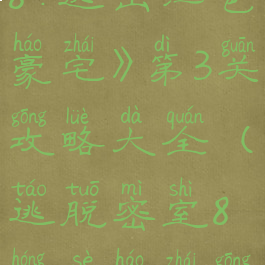 háo zhái dì guān
豪宅》第3关
gōng lüè dà quán
攻略大全（
táo tuō mì shì
逃脱密室8
hóng sè háo zhái gōng